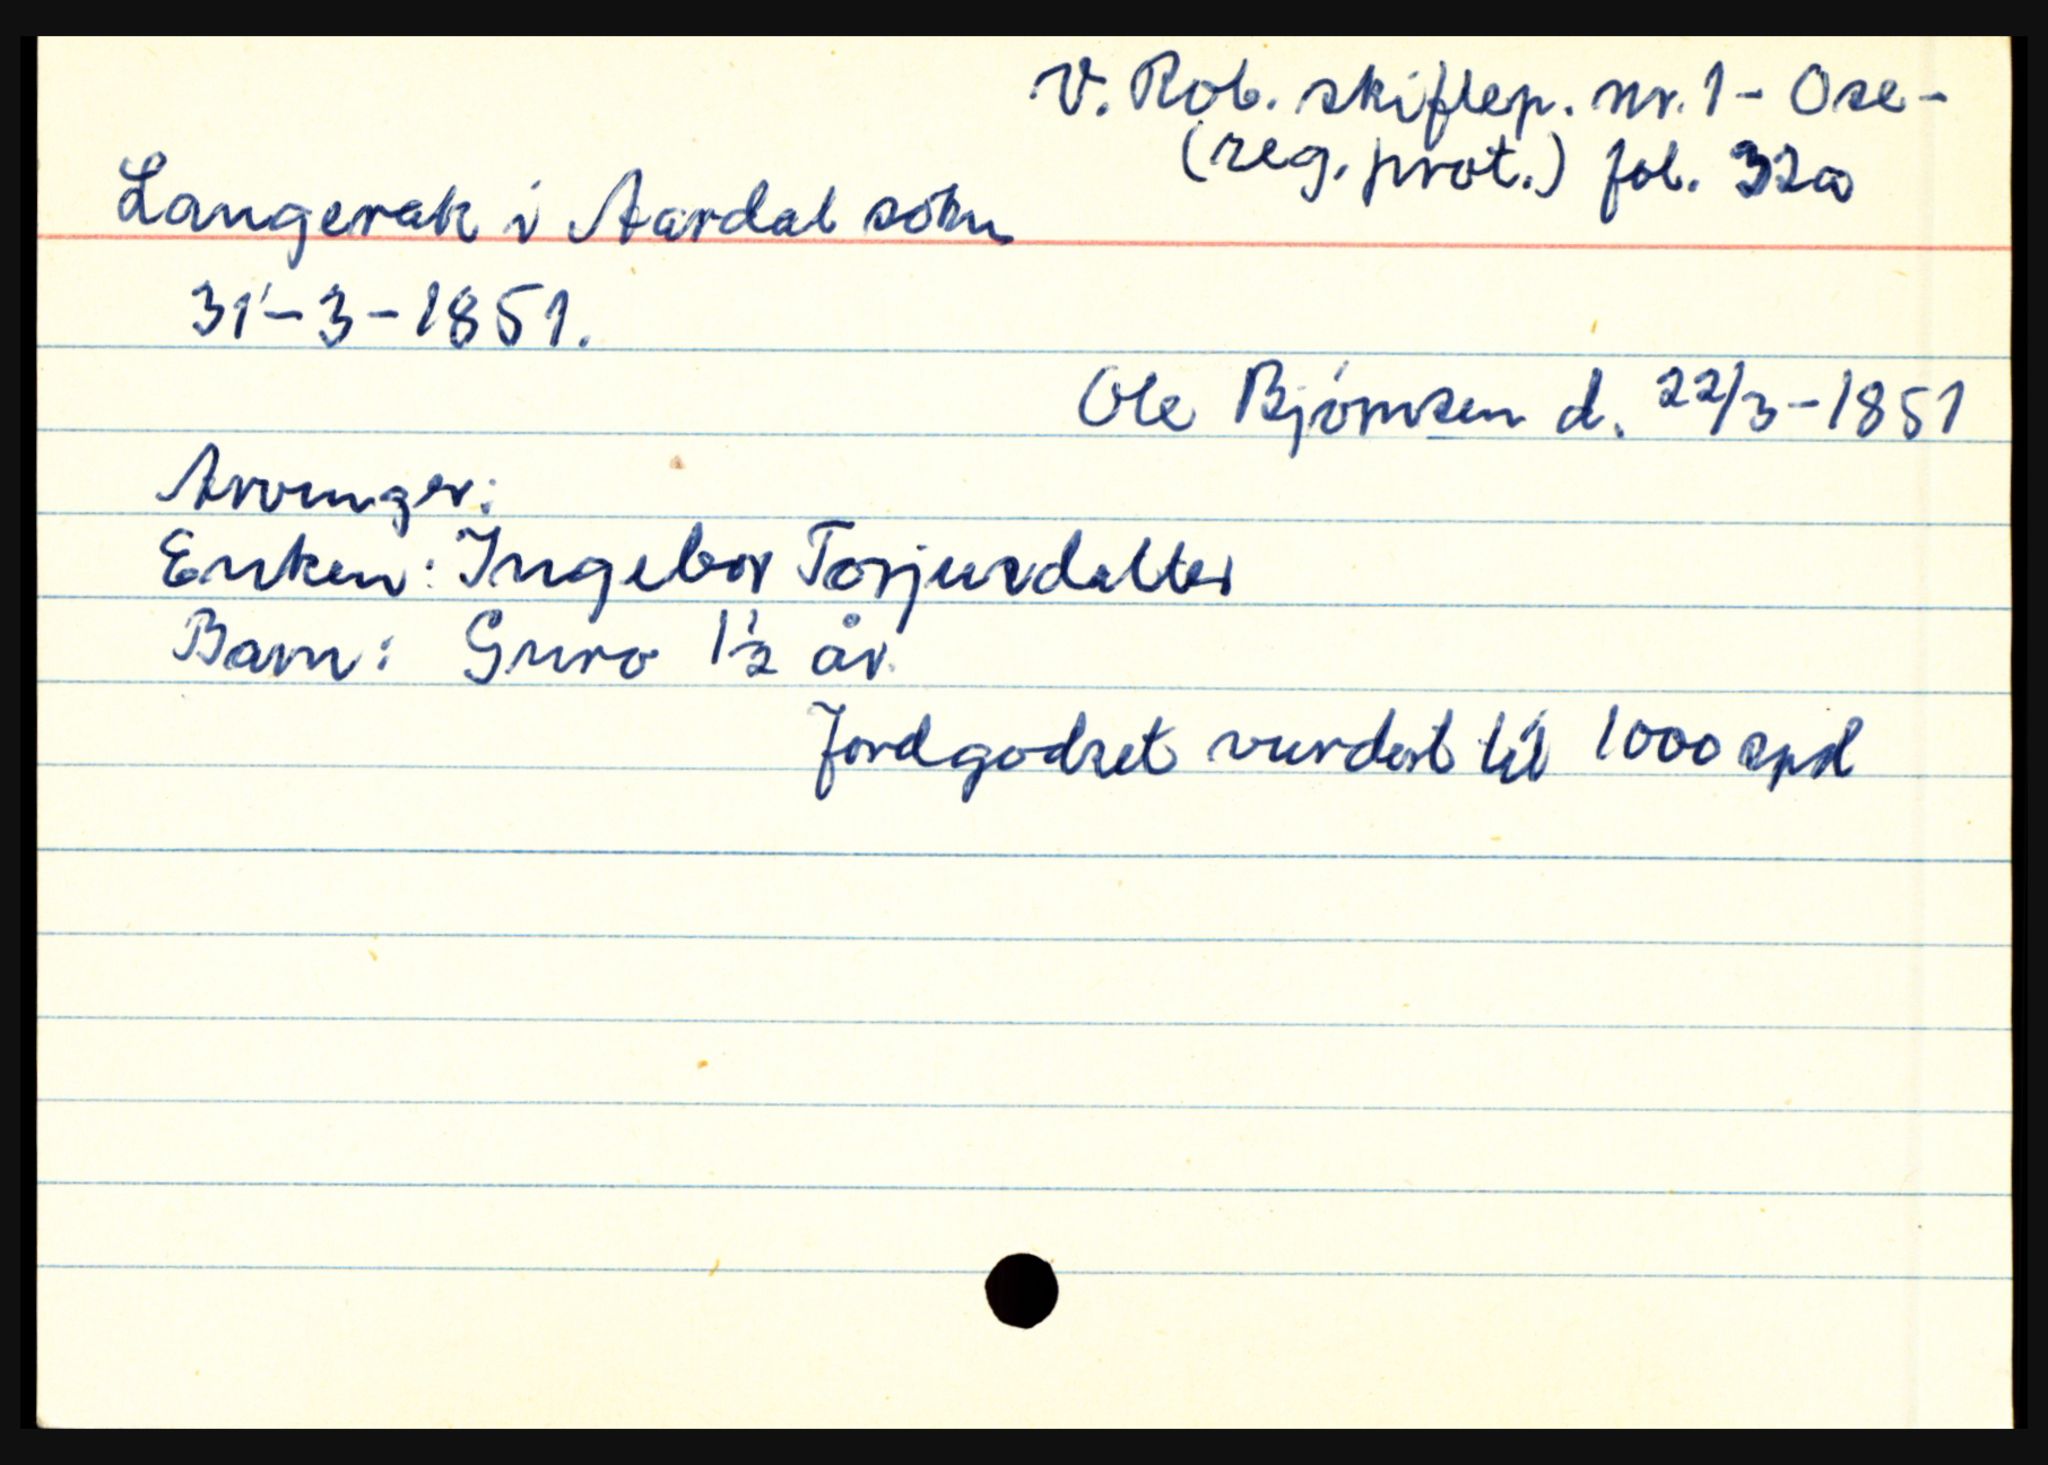 V. Rob. skiftep. nr. 1 - Ose -
(reg. prot.) fol. 32a
Langerak i Aardal sókn
31-3-1851.
Ole Bjórnsen d. 22/3-1851
Arvinger:
Enken: Ingebor Torjusdatter
Barn: Guro 1½ år.
Jordgodset vurdert til 1000 spd